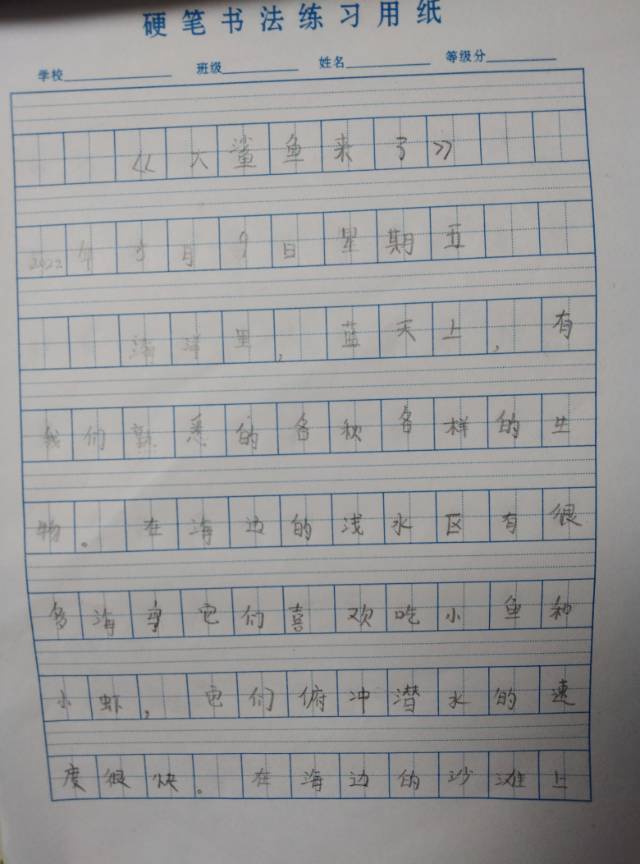 硬笔书法练习用纸
学校 班级 姓名 等级分
《大鲨鱼来了》
2022年9月9日星期五
海洋里，蓝天上，有
我们熟悉的各种各样的生
物。在海边的浅水区有很
多海 它们喜欢吃小鱼和
小虾，它们俯冲潜水的速
度很快。在海边的沙滩上